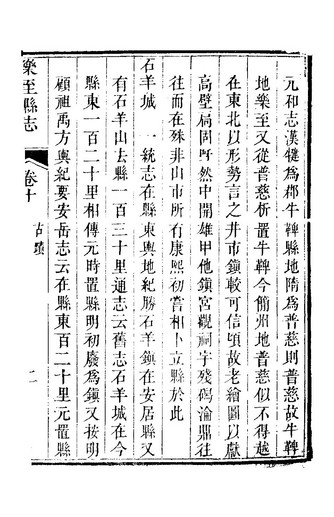 元和志漢犍為郡牛鞞縣地隋為普慈則普慈故牛鞞
地樂至又從普慈析置牛鞞今簡州地普慈似不得越
在東北以形勢言之井市鎮較可信頃故老繪圖以獻
高壁扃固呀然中開雄甲他鎮宮觀祠宇殘碣淪鼎往
往而在殊非山市所有康熙初嘗相卜立縣於此
石羊城 一統志在縣東輿地紀勝石羊鎮在安居縣又
有石羊山去縣一百三十里通志云舊志石羊城在今
縣東一百二十里相傳元時置縣明初廢為鎮又按明
顧祖禹方輿紀要安岳志云在縣東百二十里元置縣
樂至縣志
卷十
古蹟
二